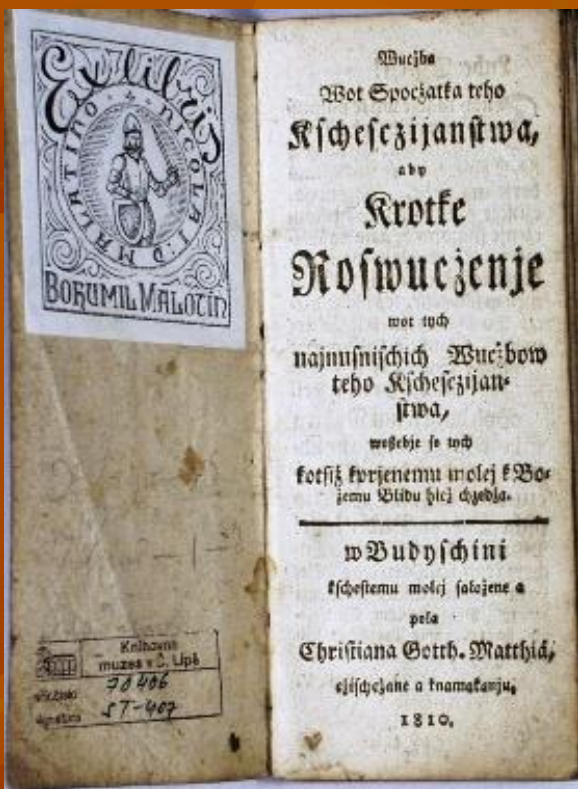 Ex libris
NICOLAI D MALATINO
BOHUMIL MALOTÍN
Knihovna
muzea v Č. Lípě
70406
ST-407
Wucžba
Wot Spocžatka teho
Kschesczijanſtwa,
aby
Krotke
Roſwucženje
wot tych
najnuſniſchich Wucžbow
teho Kschesczijan-
ſtwa,
woſebje ſe tych
kotſiž kprjenemu molej k Bo-
žemu Blidu hicž chzedža.
w Budyſchini
kſcheſtemu molej ſaložene a
pola
Christiana Gotth. Matthiä,
1810.